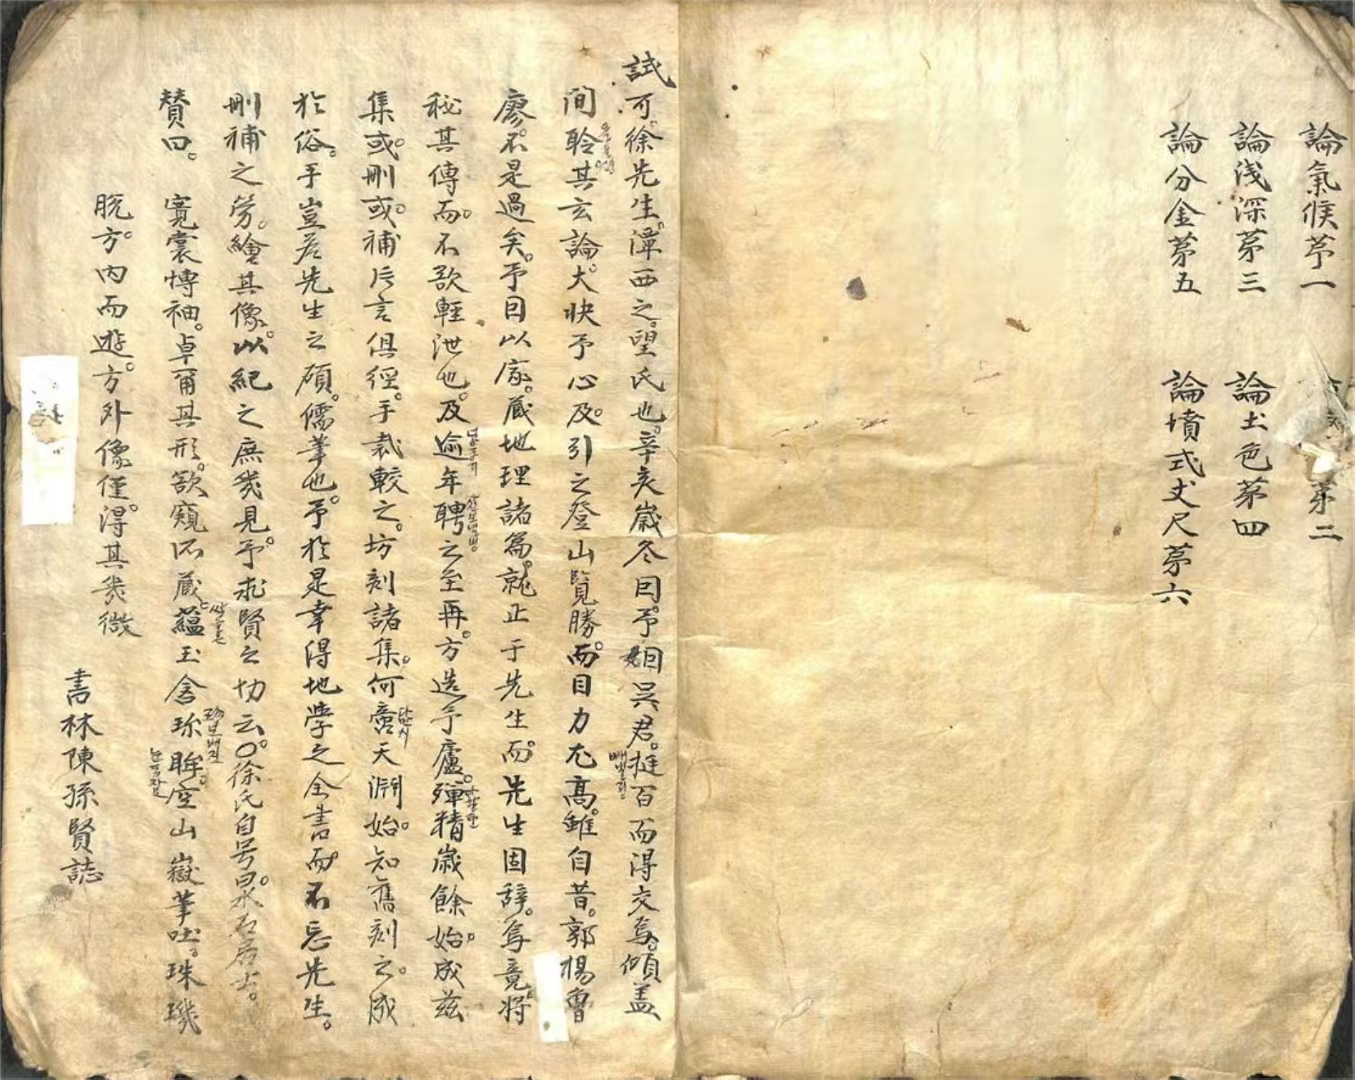 論氣候苐一
苐二
論淺深苐三
論土色苐四
論分金苐五
論墳式丈尺苐六
試可徐先生潭西之望氏也辛亥歲冬因予因吳君挺百而得交焉傾盖
間聆其玄論大快予心及引之登山覧勝而目力尤高雖自昔郭楊曾
廖不是過矣予因以家蔵地理諸篇就正于先生而先生固辞焉竟将
秘其傳而不欲輕泄也及逾年聘之至再方造予廬殫精歲餘始成玆
集或刪或補片言俱經手裁較之坊刻諸集何啻天淵始知舊刻之成
於俗手豈若先生之碩儒筆也予於是幸得地學之全書而不忘先生
刪補之勞繪其像以紀之庶幾見予求賢之切云○徐氏自号泉石居士
賛曰 寬裳愽袖卓爾其形欲窺所蔵蘊玉含珎眸空山嶽筆吐珠璣
脫方內而遊方外像僅得其幾微
書林陳孫賢誌